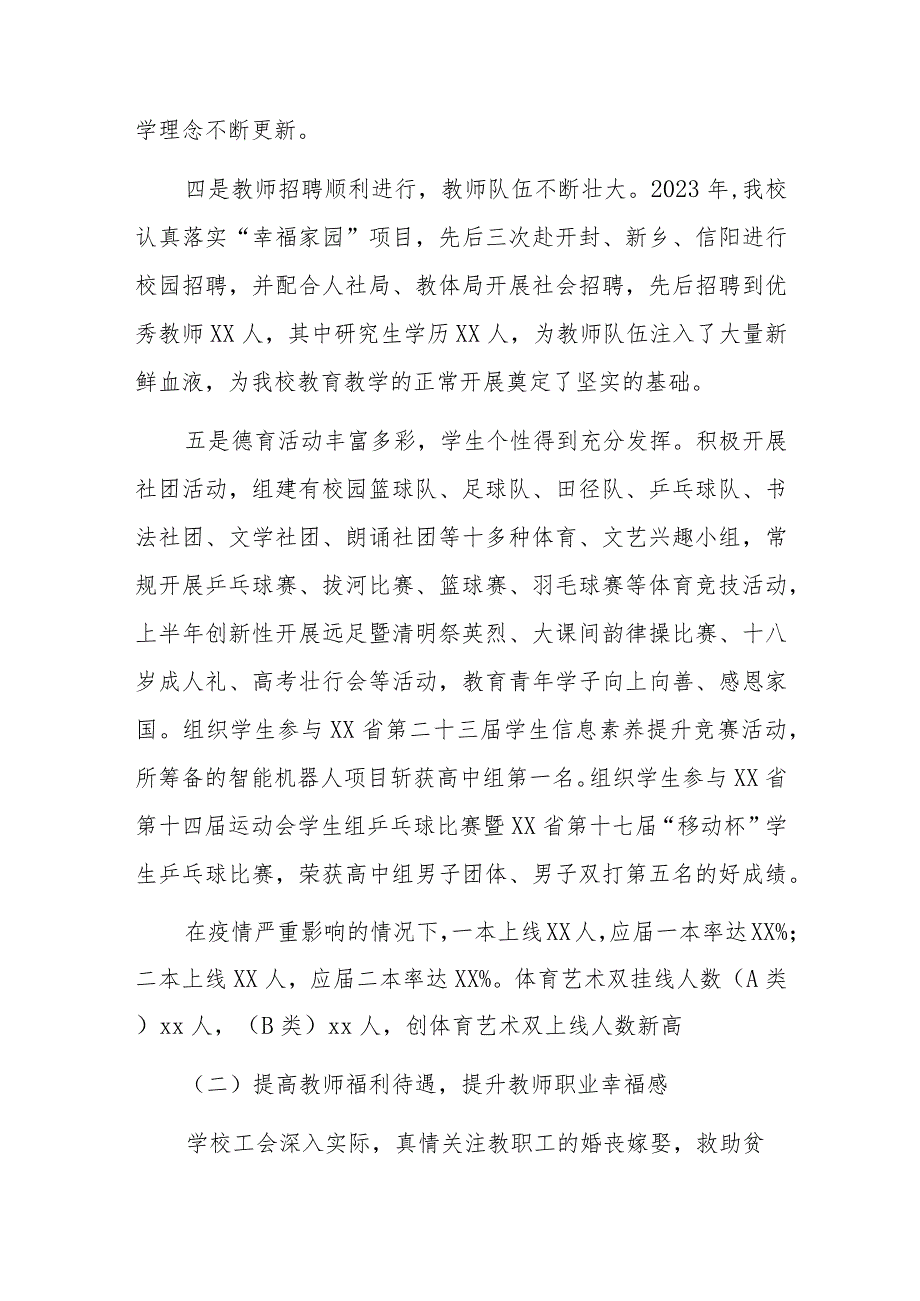 学理念不断更新。
四是教师招聘顺利进行，教师队伍不断壮大。2023 年,我校
认真落实“幸福家园”项目，先后三次赴开封、新乡、信阳进行
校园招聘，并配合人社局、教体局开展社会招聘，先后招聘到优
秀教师 XX 人，其中研究生学历 XX 人，为教师队伍注入了大量新
鲜血液，为我校教育教学的正常开展奠定了坚实的基础。
五是德育活动丰富多彩，学生个性得到充分发挥。积极开展
社团活动，组建有校园篮球队、足球队、田径队、乒乓球队、书
法社团、文学社团、朗诵社团等十多种体育、文艺兴趣小组，常
规开展乒乓球赛、拔河比赛、篮球赛、羽毛球赛等体育竞技活动，
上半年创新性开展远足暨清明祭英烈、大课间韵律操比赛、十八
岁成人礼、高考壮行会等活动，教育青年学子向上向善、感恩家
国。组织学生参与 XX 省第二十三届学生信息素养提升竞赛活动，
所筹备的智能机器人项目斩获高中组第一名。组织学生参与 XX 省
第十四届运动会学生组乒乓球比赛暨 XX 省第十七届“移动杯”学
生乒乓球比赛，荣获高中组男子团体、男子双打第五名的好成绩。
在疫情严重影响的情况下,一本上线 XX 人,应届一本率达 XX%；
二本上线 XX 人，应届二本率达 XX%。体育艺术双挂线人数（A 类
）xx 人，（B 类）xx 人，创体育艺术双上线人数新高
（二）提高教师福利待遇，提升教师职业幸福感
学校工会深入实际，真情关注教职工的婚丧嫁娶，救助贫